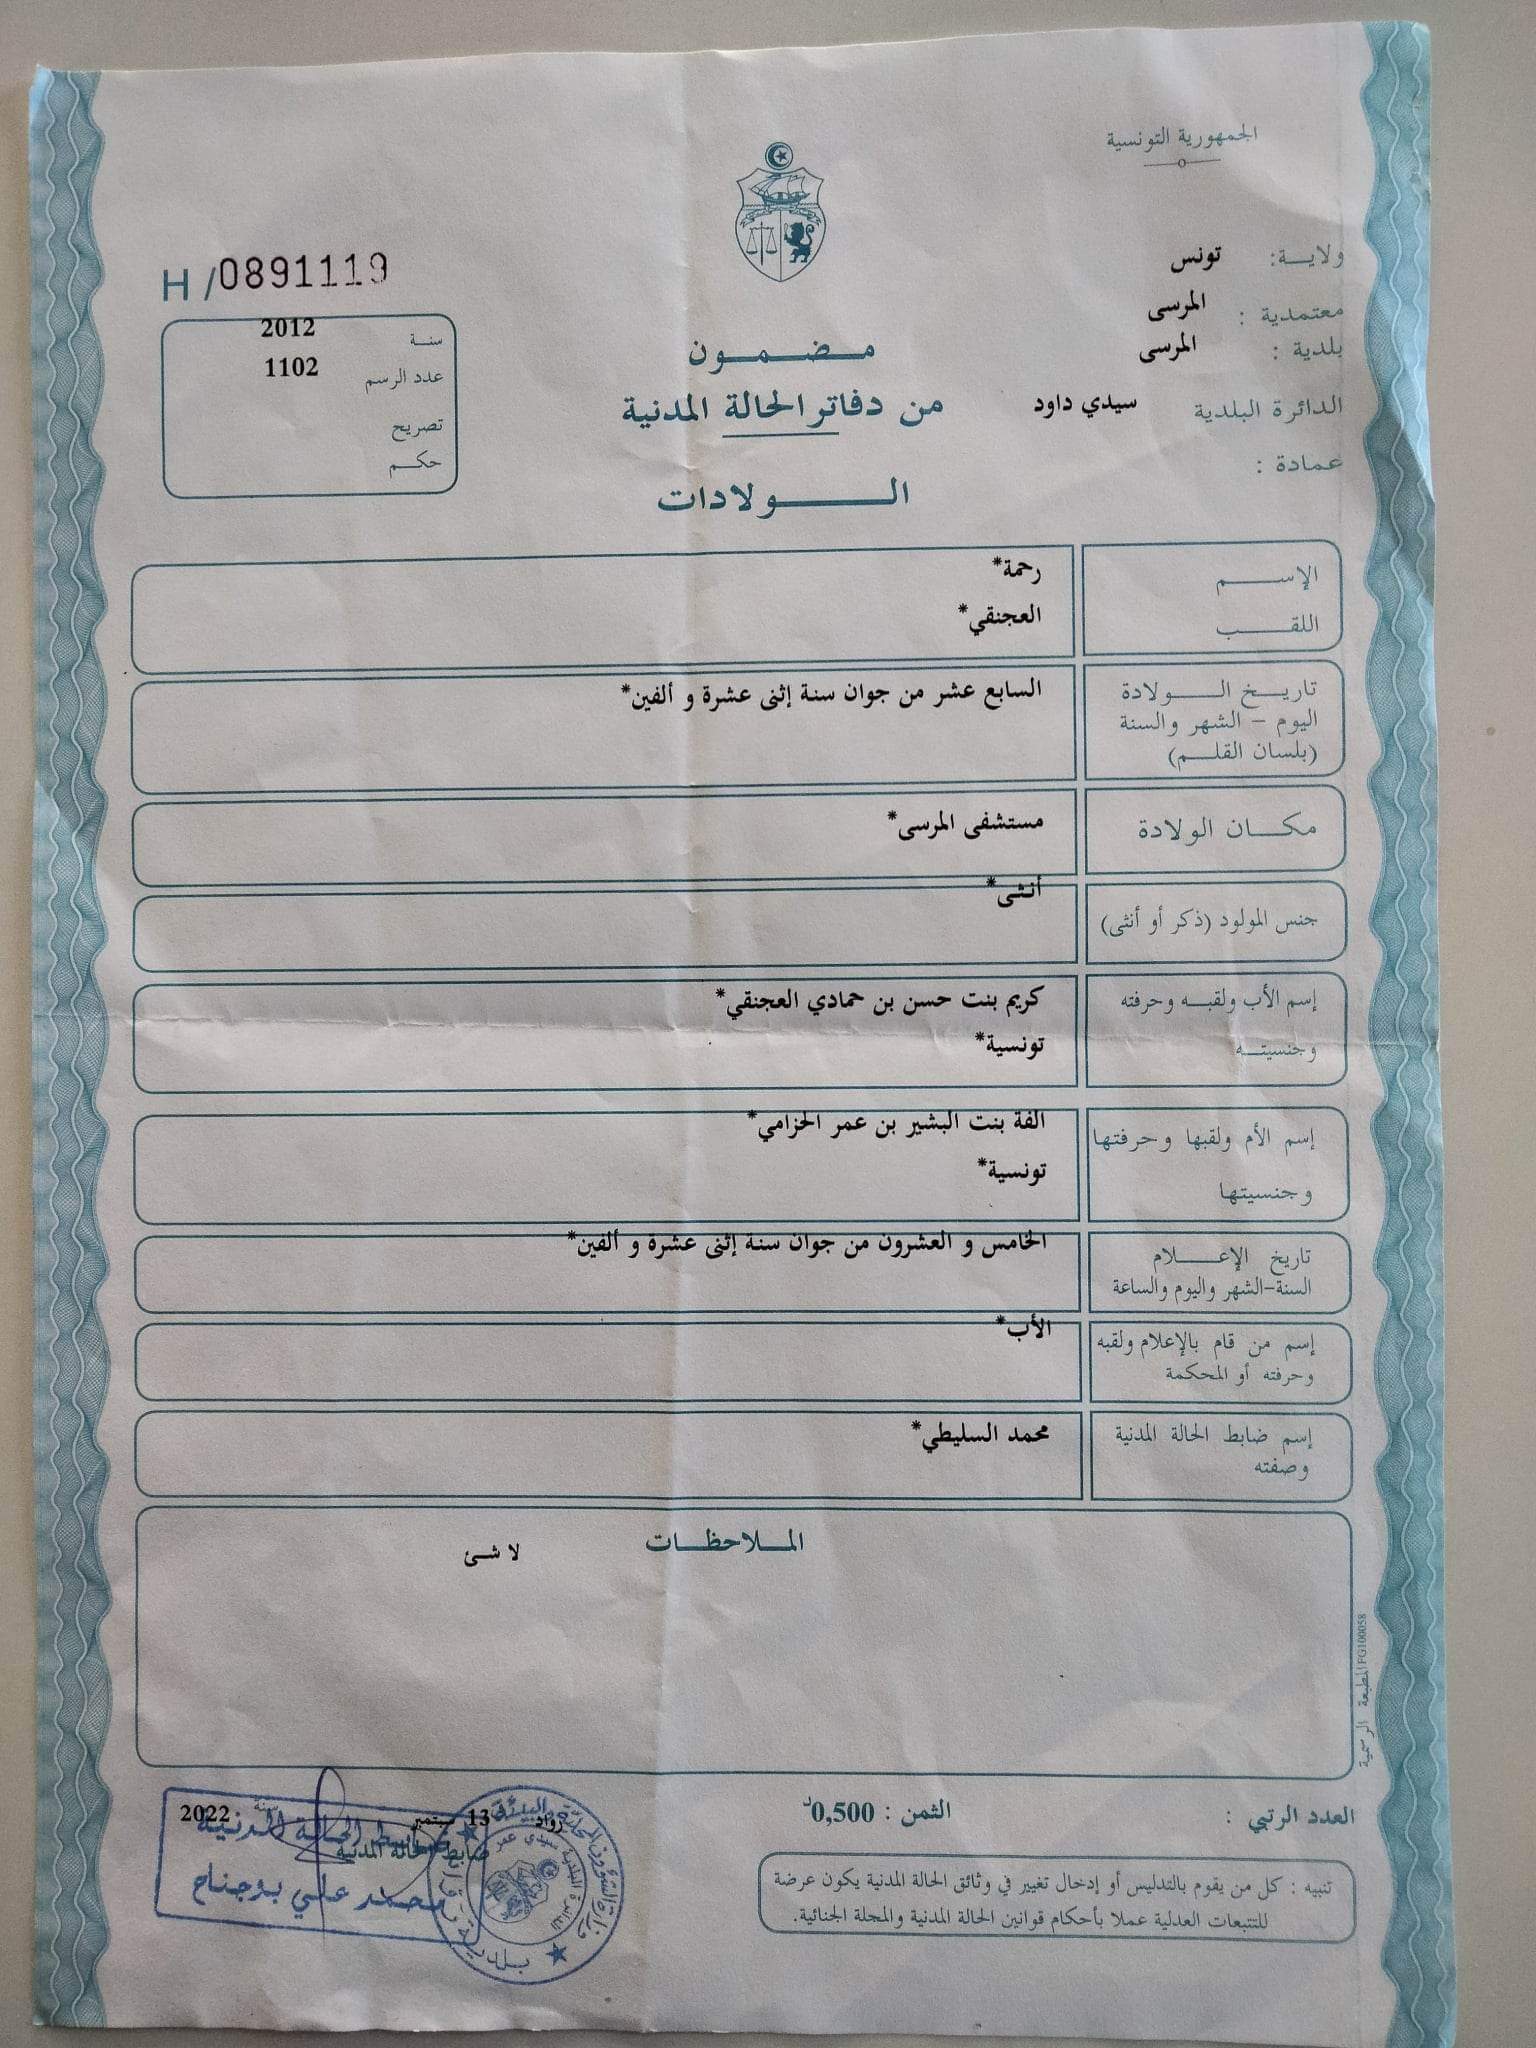 الجمهورية التونسية
ولاية: تونس
معتمدية : المرسى
بلدية : المرسى
الدائرة البلدية سيدي داود
عمادة :
مضمون
من دفاتر الحالة المدنية
الولادات
H /0891119
سنة 2012
عدد الرسم 1102
تصريح
حكم
الإسم رحمة*
اللقب العجنقي*
تاريخ الولادة السابع عشر من جوان سنة إثنى عشرة و ألفين*
اليوم - الشهر والسنة
(بلسان القلم)
مكان الولادة مستشفى المرسى*
جنس المولود (ذكر أو أنثى) أنثى*
إسم الأب ولقبه وحرفته كريم بنت حسن بن حمادي العجنقي*
وجنسيته تونسية*
إسم الأم ولقبها وحرفتها الفة بنت البشير بن عمر الحزامي*
وجنسيتها تونسية*
تاريخ الإعلام الخامس و العشرون من جوان سنة إثنى عشرة و ألفين*
السنة-الشهر واليوم والساعة
إسم من قام بالإعلام ولقبه الأب*
وحرفته أو المحكمة
إسم ضابط الحالة المدنية محمد السليطي*
وصفته
الملاحظات
لا شئ
المطبعة الرسمية FG100058
العدد الرتبي : الثمن : 0,500د
رواد 13 سبتمبر سنة 2022
ضابط الحالة المدنية
ضابط الحالة المدنية
محمد علي بوجناح
وزارة الشؤون المحلية والبيئة
الدائرة البلدية سيدي عمر
بلدية رواد
تنبيه : كل من يقوم بالتدليس أو إدخال تغيير في وثائق الحالة المدنية يكون عرضة
للتتبعات العدلية عملا بأحكام قوانين الحالة المدنية والمجلة الجنائية.